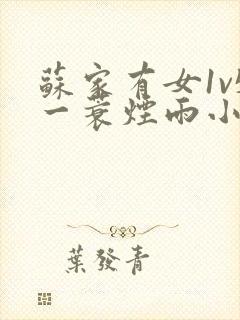 蘇家有女1v
一蓑煙雨小
葉發青